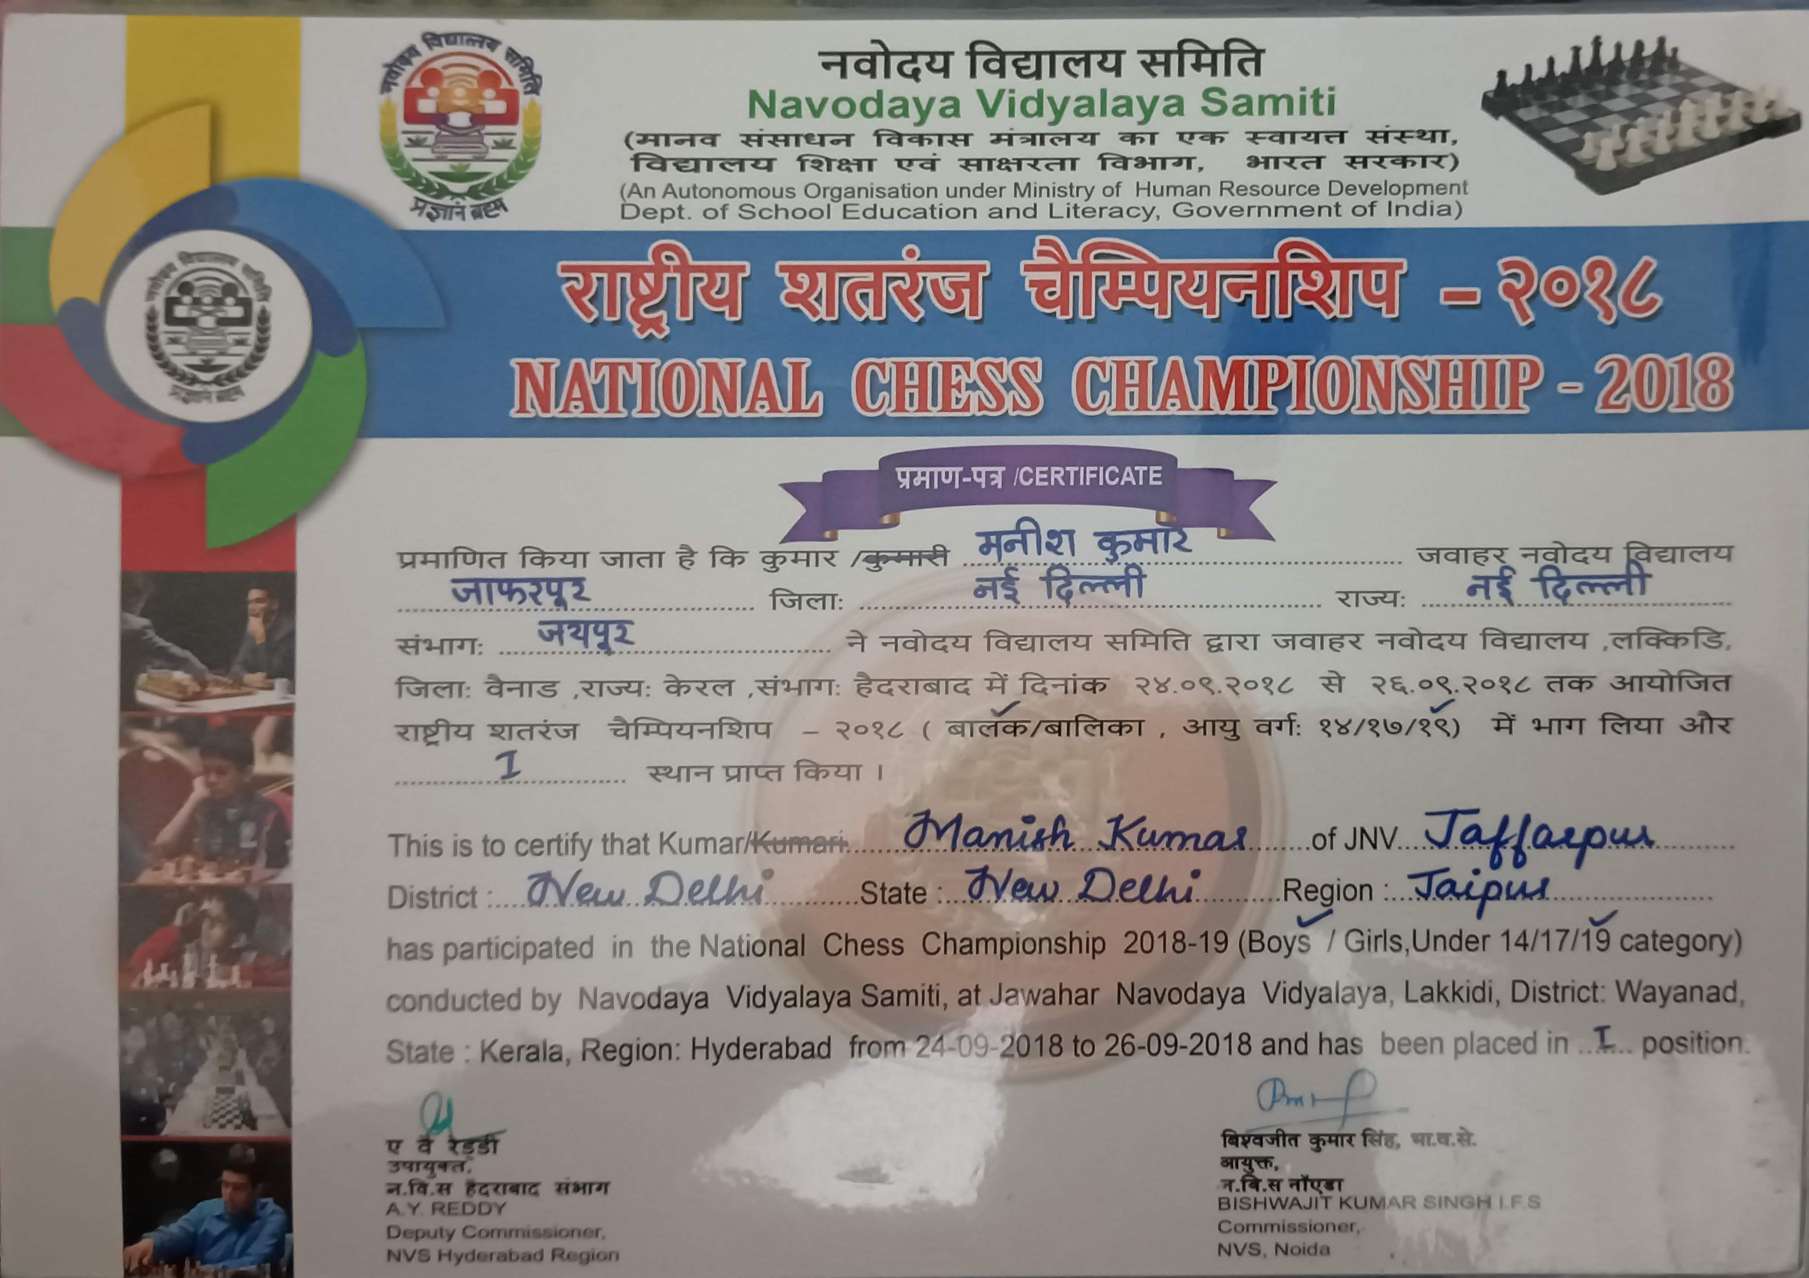 नवोदय विद्यालय समिति
प्रज्ञानं ब्रह्म
नवोदय विद्यालय समिति
Navodaya Vidyalaya Samiti
(मानव संसाधन विकास मंत्रालय का एक स्वायत्त संस्था,
विद्यालय शिक्षा एवं साक्षरता विभाग, भारत सरकार)
(An Autonomous Organisation under Ministry of Human Resource Development
Dept. of School Education and Literacy, Government of India)
नवोदय विद्यालय समिति
प्रज्ञानं ब्रह्म
राष्ट्रीय शतरंज चैम्पियनशिप - २०१८
NATIONAL CHESS CHAMPIONSHIP - 2018
प्रमाण-पत्र /CERTIFICATE
प्रमाणित किया जाता है कि कुमार /कुमारी मनीश कुमार जवाहर नवोदय विद्यालय
जाफरपूर जिलाः नई दिल्ली राज्यः नई दिल्ली
संभागः जयपूर ने नवोदय विद्यालय समिति द्वारा जवाहर नवोदय विद्यालय ,लक्किडि,
जिलाः वैनाड ,राज्यः केरल ,संभागः हैदराबाद में दिनांक २४.०९.२०१८ से २६.०९.२०१८ तक आयोजित
राष्ट्रीय शतरंज चैम्पियनशिप – २०१८ ( बालक/बालिका , आयु वर्गः १४/१७/१९) में भाग लिया और
I स्थान प्राप्त किया ।
This is to certify that Kumar/Kumari Manish Kumar of JNV Jaffarpur
District : New Delhi State : New Delhi Region : Jaipur
has participated in the National Chess Championship 2018-19 (Boys / Girls,Under 14/17/19 category)
conducted by Navodaya Vidyalaya Samiti, at Jawahar Navodaya Vidyalaya, Lakkidi, District: Wayanad,
State : Kerala, Region: Hyderabad from 24-09-2018 to 26-09-2018 and has been placed in I position.
ए वै रेड्डी
उपायुक्त,
न.वि.स हैदराबाद संभाग
A.Y. REDDY
Deputy Commissioner,
NVS Hyderabad Region
बिश्वजीत कुमार सिंह, भा.व.से.
आयुक्त,
न.वि.स नॉएडा
BISHWAJIT KUMAR SINGH I.F.S
Commissioner,
NVS, Noida